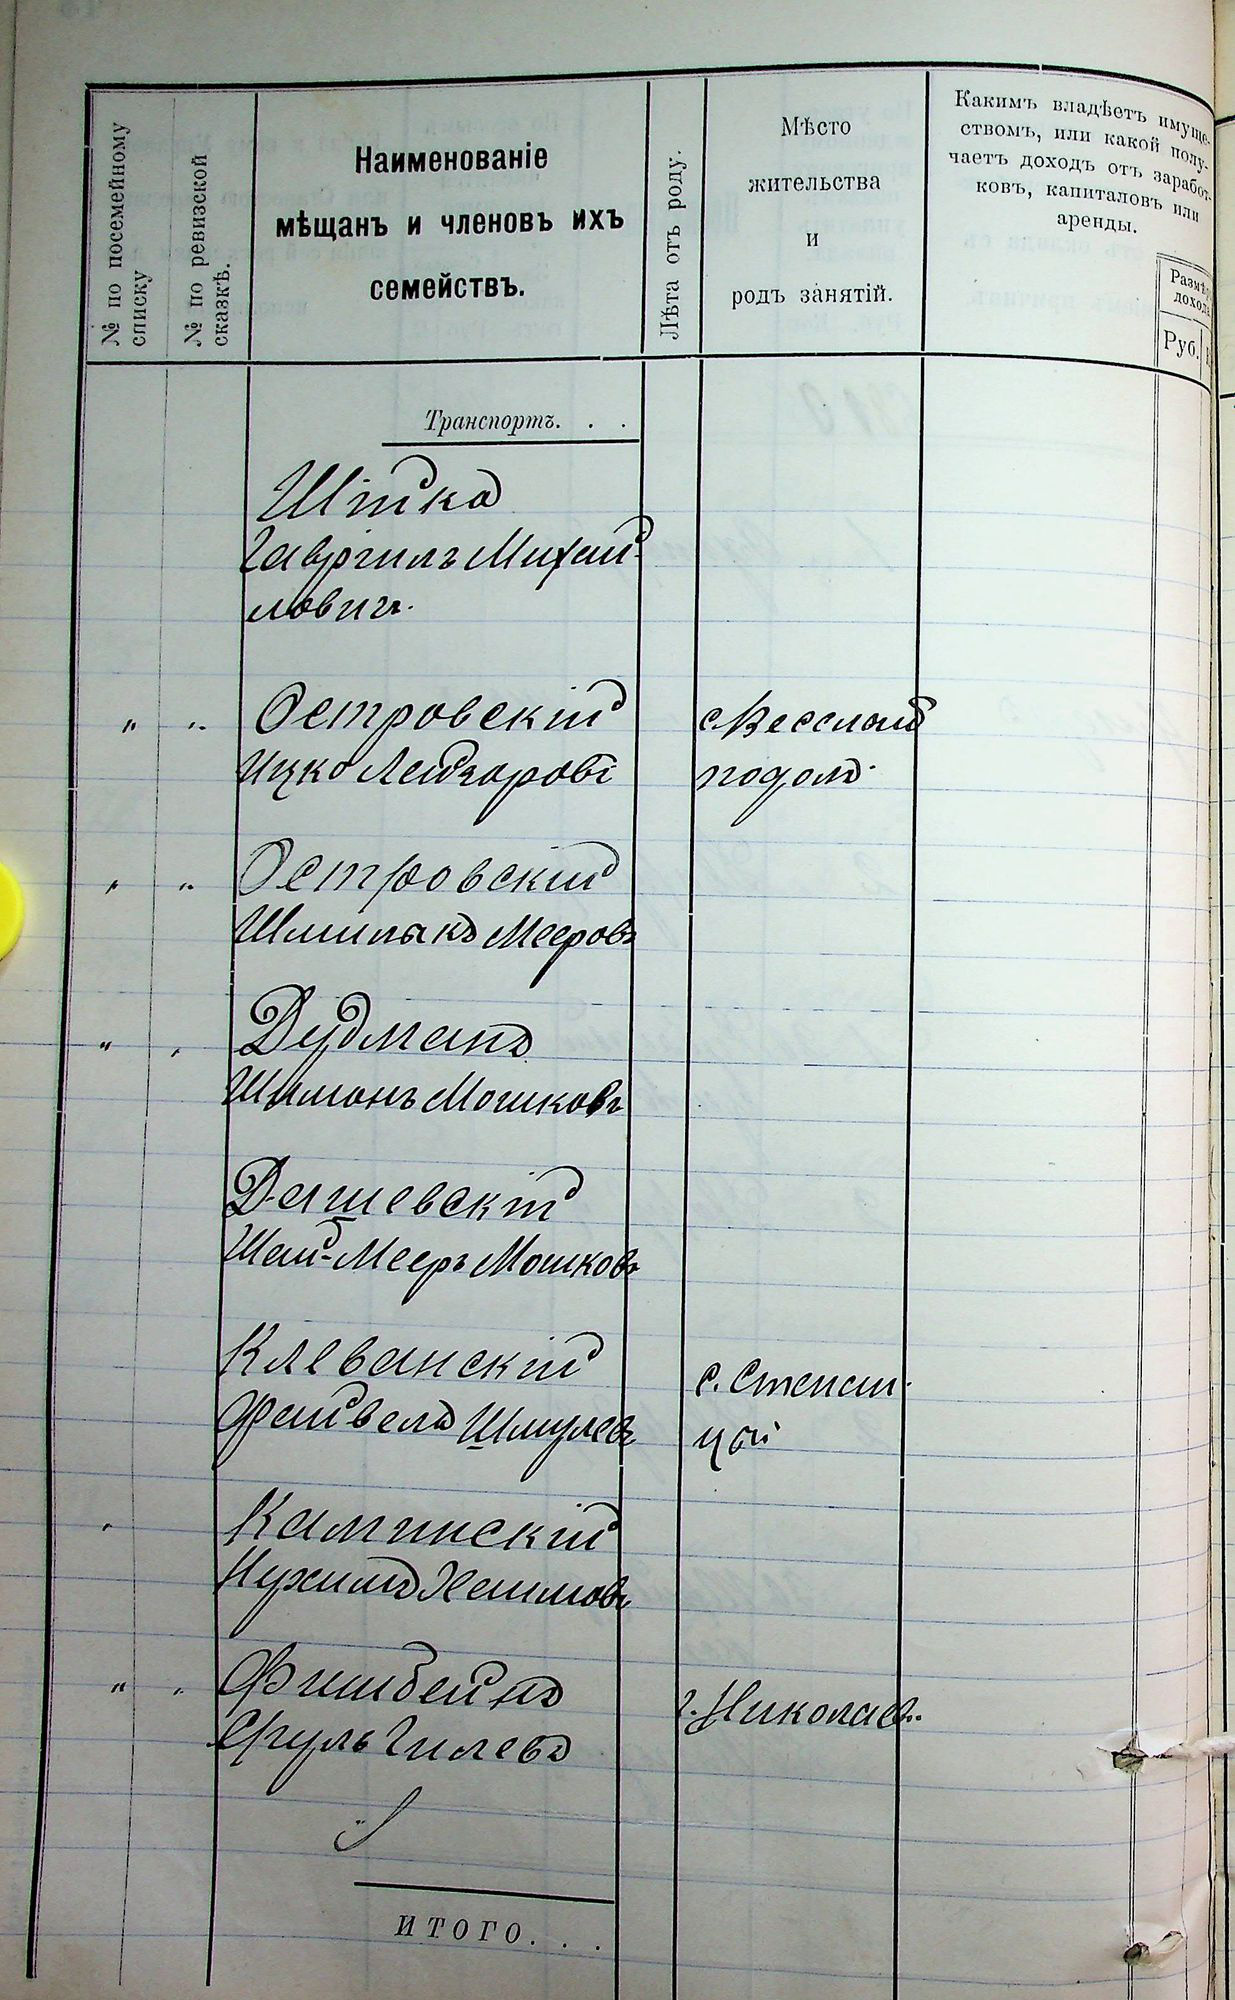 № по посемейному
списку
№ по ревизской
сказкѣ.
Наименованіе
мѣщанъ и членовъ ихъ
семействъ.
Лѣта отъ роду.
Мѣсто
жительства
и
родъ занятій.
Какимъ владѣетъ имуще-
ствомъ, или какой полу-
чаетъ доходъ отъ заработ-
ковъ, капиталовъ или
аренды.
Размѣръ
дохода
Руб.
Транспортъ. . .
Шітка
Гавріилъ Михай-
ловичъ.
„ „ Островскій
с. Веселый
Ицко Лейзоровъ
подолъ.
„ „ Островскій
Шмилакъ Мееровъ
„ „ Дудманъ
Шимонъ Мошковъ
Дашевскій
Шай-Мееръ Мошковъ
Клеванскій
с. Степан-
Файвель Шмулевъ
цой
„ Каминскій
Нухимъ Хаимовъ
„ „ Фишбейнъ
г. Николаев..
Сруль Гилевъ
ИТОГО. . .